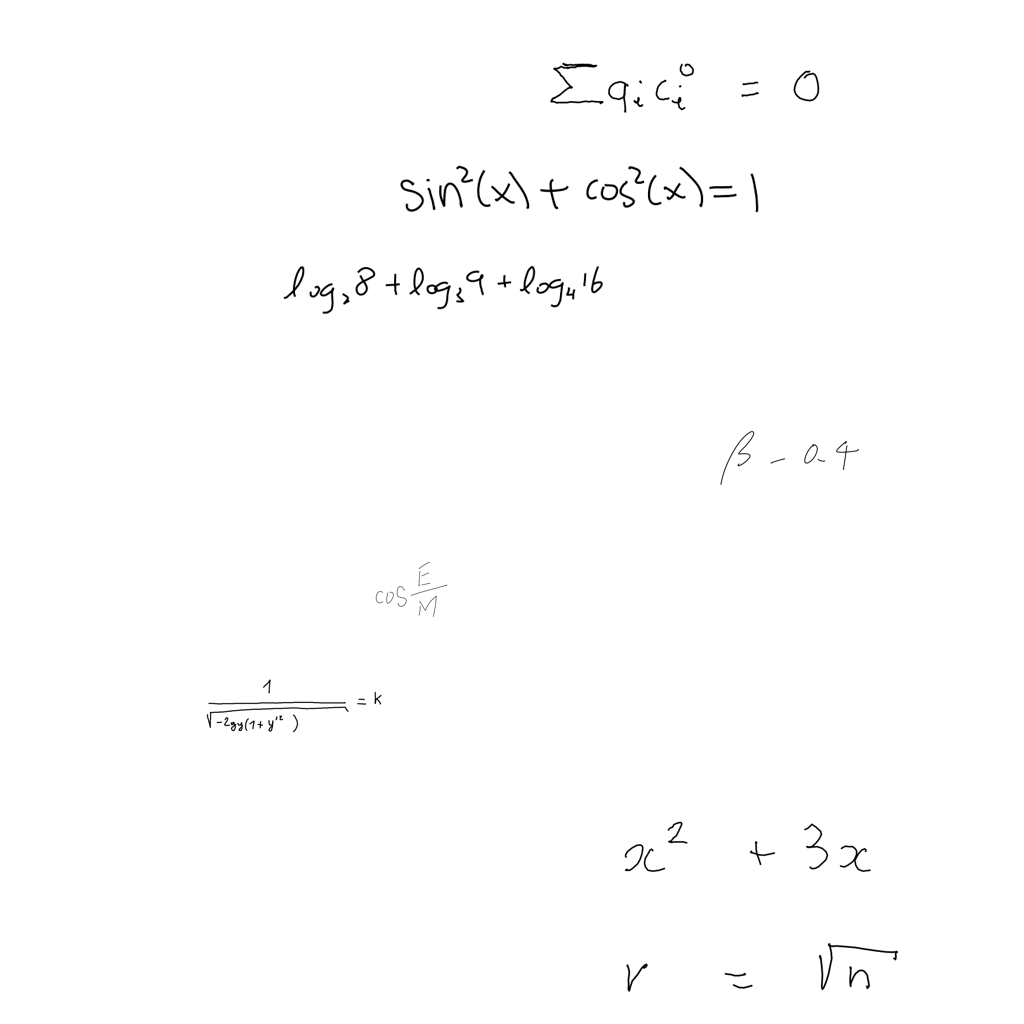 ∑ q_i c_i^0 = 0
sin²(x) + cos²(x) = 1
log₂8 + log₃9 + log₄16
β - 0.4
cos E/M
1/√(-2gy(1+y'²)) = k
x² + 3x
r = √n